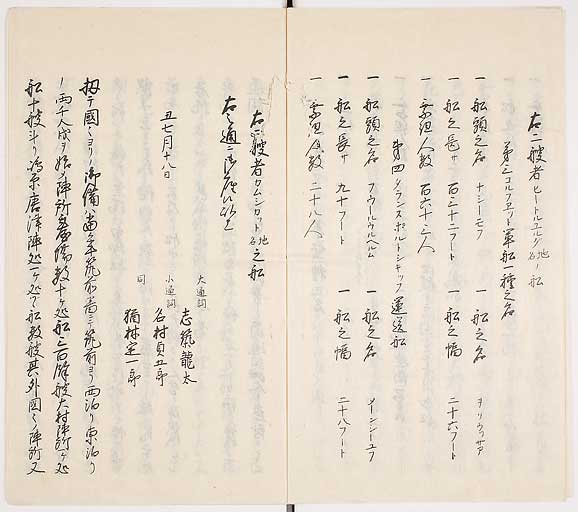 右二艘者ヒートルユルグ地名ノ船
第三コルフエット軍船一種之名
一 船頭之名 ナシーモフ 一 船之名 ヲリウッサア
一 船之長サ 百三十二フート 一 船之幅 二十六フート
一 乗組人数 百六十三人
第四タランスポルトシキップ 運送船
一 船頭之名 フウールウルヘルム 一 船之名 メーンシーコフ
一 船之長サ 九十フート 一 船之幅 二十八フート
一 乗組人数 二十八人
右二艘者カムシカット地名之船
右之通二御座候以上
丑七月十八日
大通詞 志筑龍太
小通詞 名村貞五郎
同 猶林定一郎
扨テ國ミヨリ御備当年筑前番ニテ筑前ヨリ西泊リ東泊リ
ノ両千人戍ヲ始メ陣所番屋陣数十ケ処船三百餘艘大村陣所ケ処
船十艘斗リ島原唐津陣処一ケ処ツヽ船数艘其外國ミノ陣所又